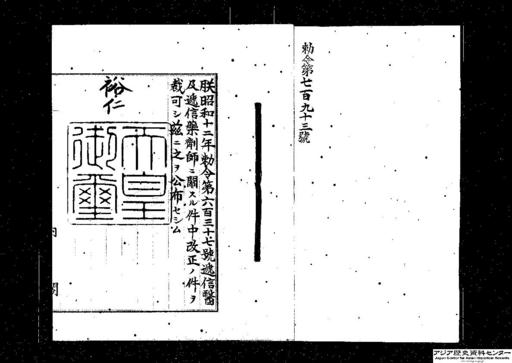 勅令第七百九十三號
朕昭和十二年勅令第六百三十七號遞信醫
及遞信藥劑師ニ關スル件中改正ノ件ヲ
裁可シ茲ニ之ヲ公布セシム
裕仁
天皇
御璽
内
閣
アジア歴史資料センター
Japan Center for Asian Historical Records